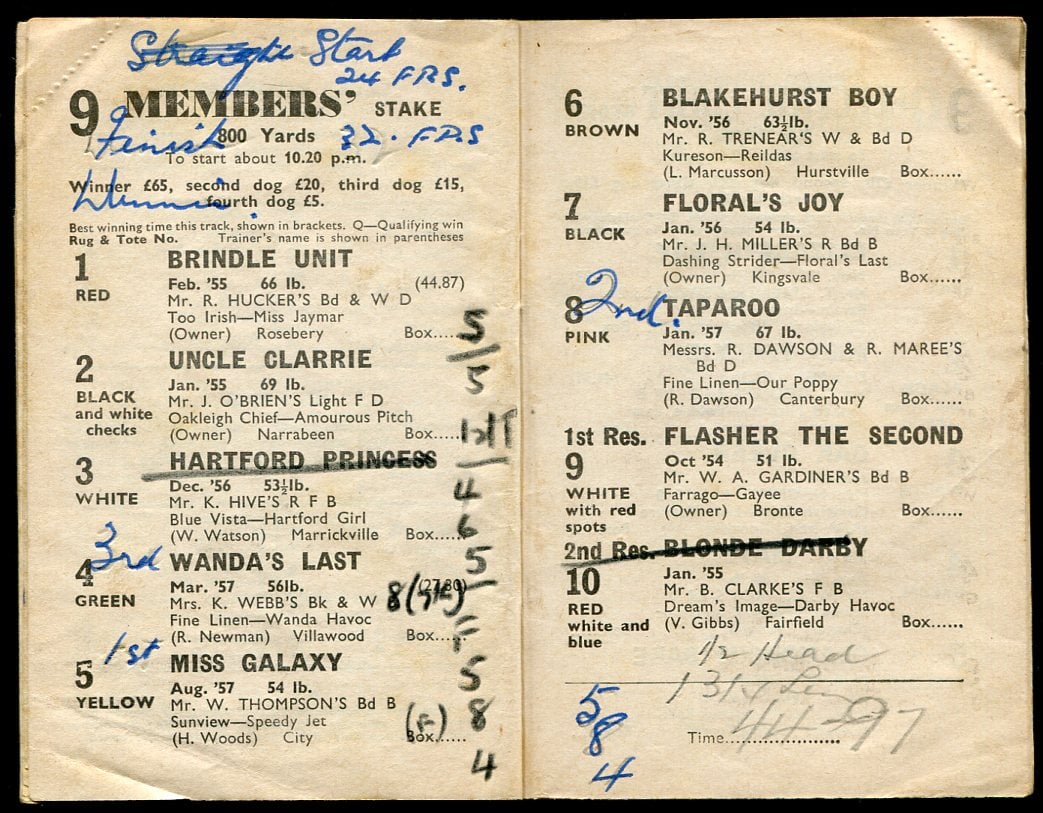 Straight Start
24 FRS.
9 MEMBERS' STAKE
Finish 800 Yards 32. FRS
To start about 10.20 p.m.
Winner £65, second dog £20, third dog £15,
fourth dog £5.
Best winning time this track, shown in brackets. Q—Qualifying win
Rug & Tote No. Trainer's name is shown in parentheses
1 BRINDLE UNIT
RED
Feb. '55 66 lb. (44.87)
Mr. R. HUCKER'S Bd & W D
Too Irish—Miss Jaymar
(Owner) Rosebery Box......
5
2 UNCLE CLARRIE
BLACK
and white
checks
5
Jan. '55 69 lb.
Mr. J. O'BRIEN'S Light F D
Oakleigh Chief—Amourous Pitch
(Owner) Narrabeen Box......
3 HARTFORD PRINCESS
WHITE
Dec. '56 53½lb.
4
Mr. K. HIVE'S R F B
Blue Vista—Hartford Girl
6
(W. Watson) Marrickville Box......
3rd
4 WANDA'S LAST
GREEN
5
Mar. '57 56lb. (27.80)
Mrs. K. WEBB'S Bk & W
8
Fine Linen—Wanda Havoc
(R. Newman) Villawood Box......
1st
5 MISS GALAXY
YELLOW
5
Aug. '57 54 lb.
Mr. W. THOMPSON'S Bd B
Sunview—Speedy Jet
8
(H. Woods) City Box......
4
6 BLAKEHURST BOY
BROWN
Nov. '56 63½lb.
Mr. R. TRENEAR'S W & Bd D
Kureson—Reildas
(L. Marcusson) Hurstville Box......
7 FLORAL'S JOY
BLACK
Jan. '56 54 lb.
Mr. J. H. MILLER'S R Bd B
Dashing Strider—Floral's Last
(Owner) Kingsvale Box......
2nd.
8 TAPAROO
PINK
Jan. '57 67 lb.
Messrs. R. DAWSON & R. MAREE'S
Bd D
Fine Linen—Our Poppy
(R. Dawson) Canterbury Box......
1st Res. FLASHER THE SECOND
9
WHITE
with red
spots
Oct '54 51 lb.
Mr. W. A. GARDINER'S Bd B
Farrago—Gayee
(Owner) Bronte Box......
2nd Res. BLONDE DARBY
10
RED
white and
blue
Jan. '55
Mr. B. CLARKE'S F B
Dream's Image—Darby Havoc
(V. Gibbs) Fairfield Box......
1/2 Head
5
8
4
Time......................
44-97